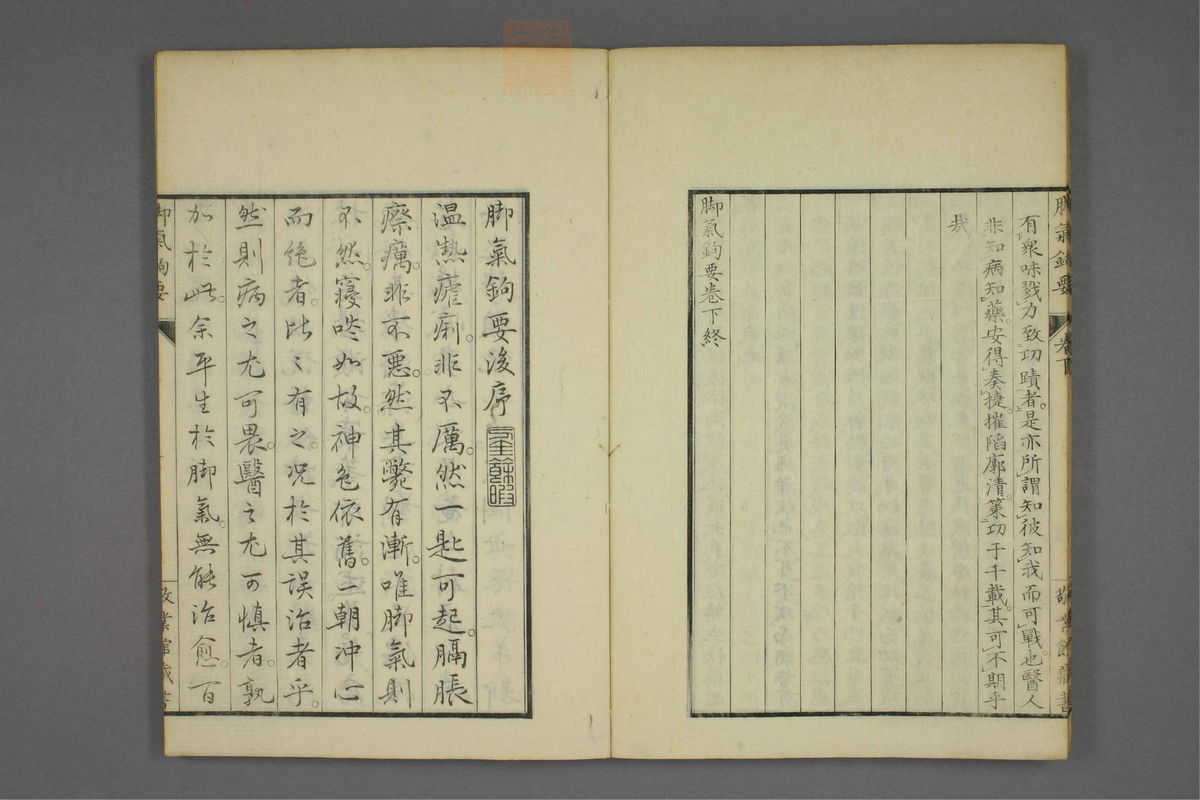 有衆味戮力致功蹟者是亦所謂知彼知我而可戰也醫人
非知病知藥安得奏捷摧陷廓清策功于千載其可不期乎
哉
脚氣鉤要卷下終
脚氣鉤要後序
温熱瘧痢。非不厲。然一匙可起。膈脹
瘵癘。非不惡。然其斃有漸。唯脚氣則
不然。寝啖如故。神色依舊。一朝冲心
而絶者。比〻有之。况於其誤治者乎。
然則病之尤可畏。醫之尤可慎者。孰
加於此。余平生於脚氣。無能治愈。百
脚氣鉤要